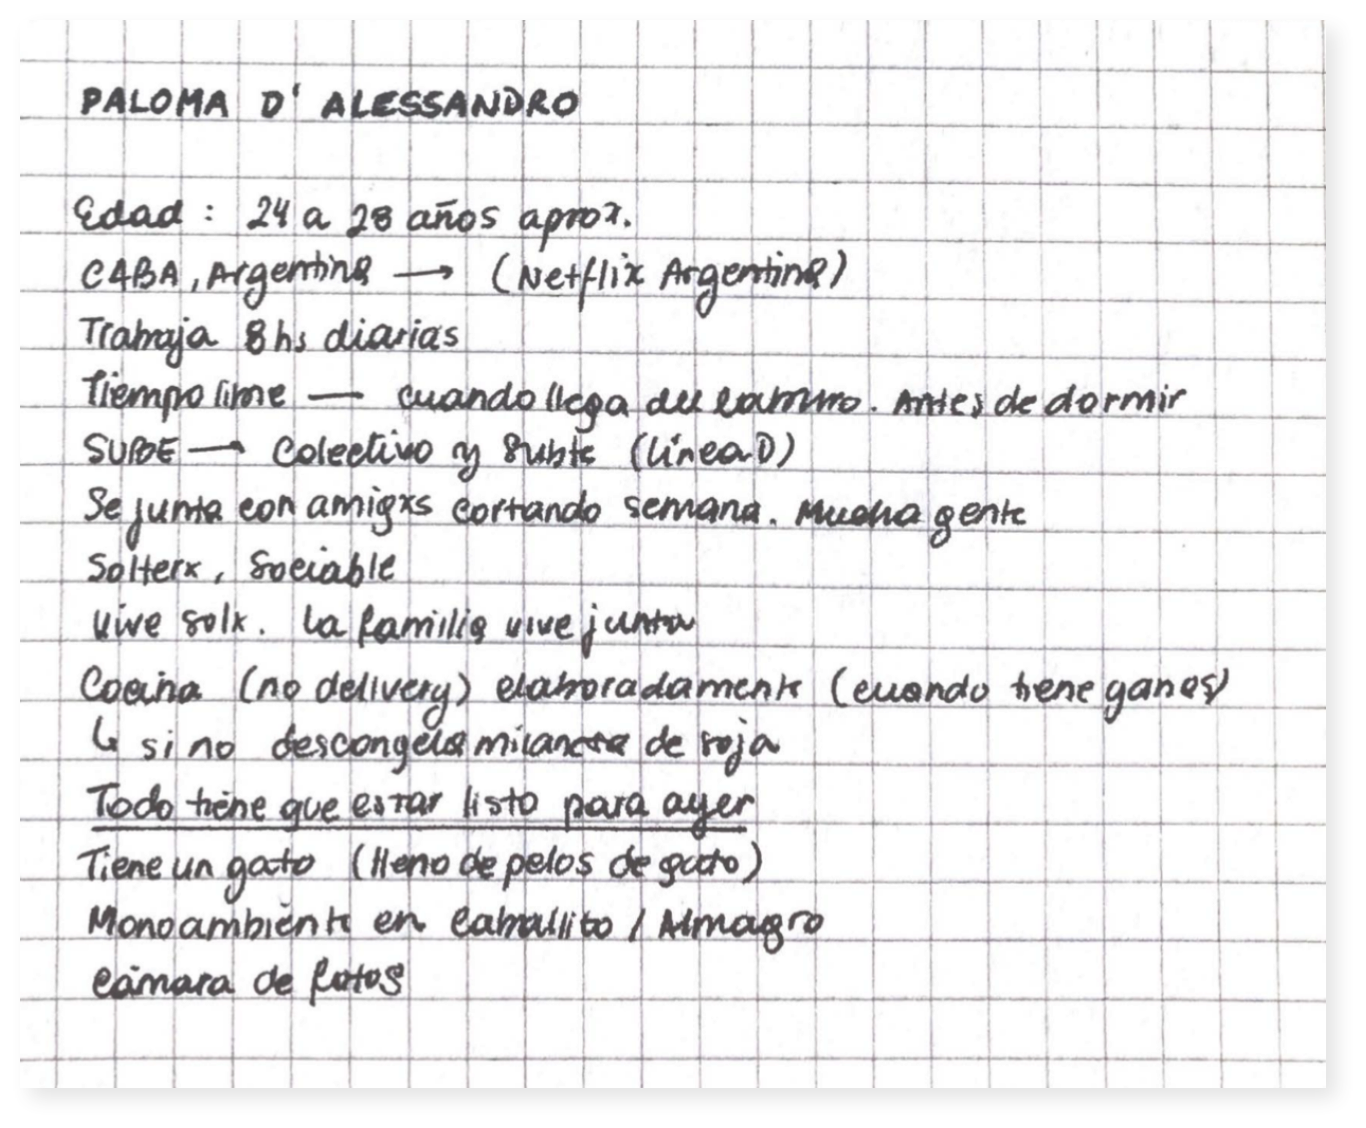 PALOMA D' ALESSANDRO
Edad : 24 a 28 años aprox.
CABA, Argentina → (Netflix Argentina)
Trabaja 8hs diarias
Tiempo libre — cuando llega del laburo. Antes de dormir
SUBE → Colectivo y Subte (línea D)
Se junta con amigxs cortando semana. Mucha gente
Solterx, Sociable
Vive solx. La familia vive junta
Cocina (no delivery) elaboradamente (cuando tiene ganas)
↳ si no descongela milanesa de soja
Todo tiene que estar listo para ayer
Tiene un gato (lleno de pelos de gato)
Monoambiente en Caballito / Almagro
Cámara de fotos